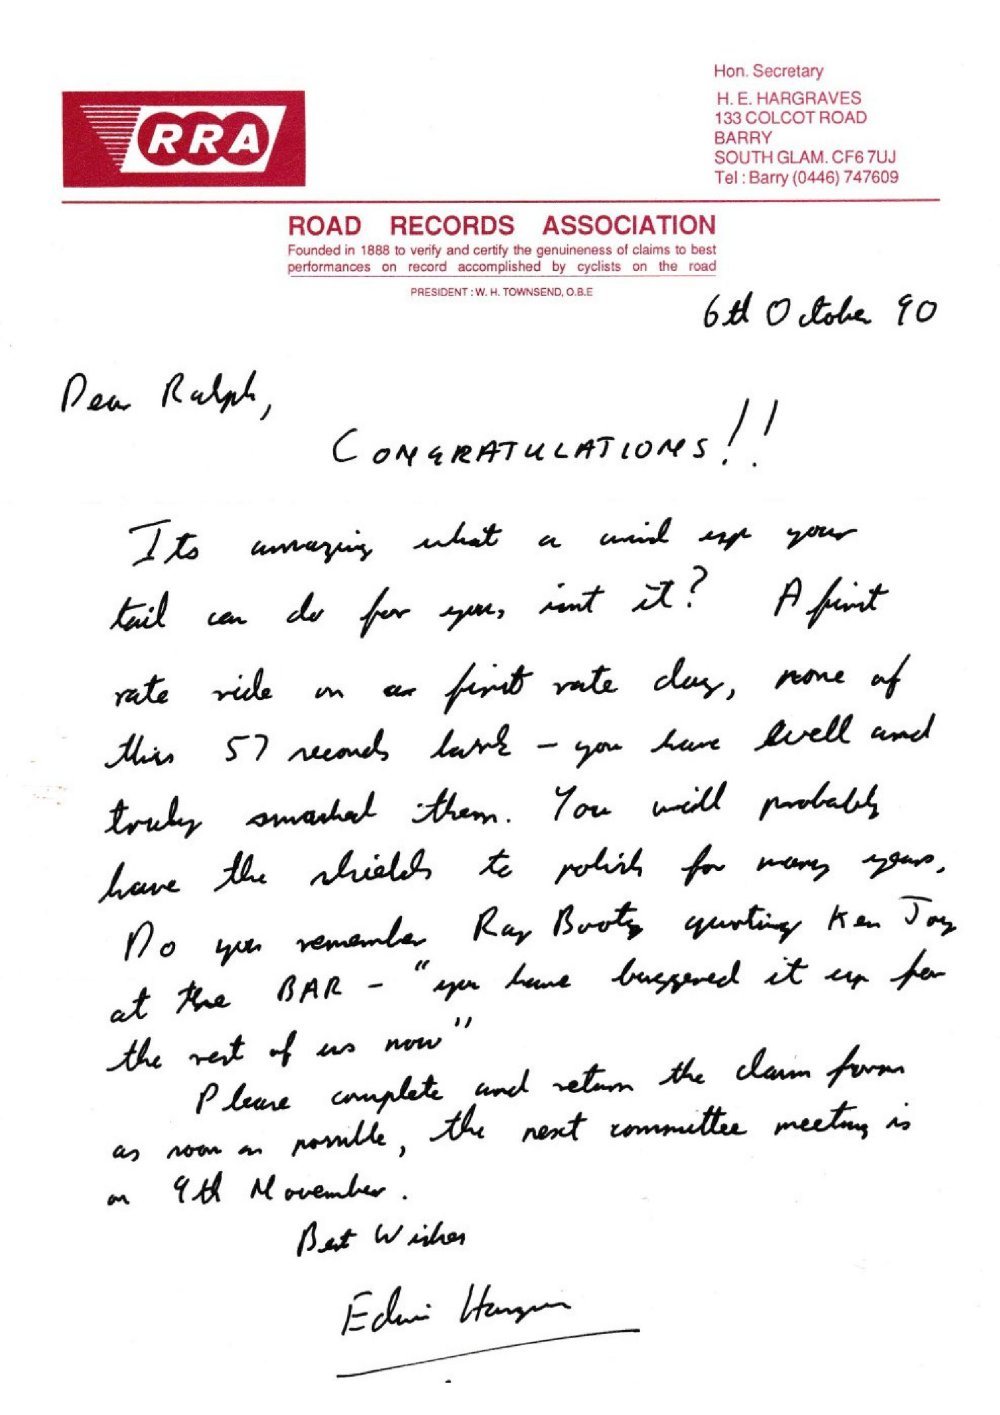 RRA
Hon. Secretary
H. E. HARGRAVES
133 COLCOT ROAD
BARRY
SOUTH GLAM. CF6 7UJ
Tel : Barry (0446) 747609
ROAD RECORDS ASSOCIATION
Founded in 1888 to verify and certify the genuineness of claims to best
performances on record accomplished by cyclists on the road
PRESIDENT : W. H. TOWNSEND, O.B.E
6th October 90
Dear Ralph,
CONGRATULATIONS!!
Its amazing what a wind up your
tail can do for you, isnt it? A first
rate ride on a first rate day, none of
this 57 seconds lark - you have well and
truly smashed them. You will probably
have the shields to polish for many years.
Do you remember Ray Booty quoting Ken Joy
at the BAR - "you have buggered it up for
the rest of us now"
Please complete and return the claim form
as soon as possible, the next committee meeting is
on 9th November.
Best Wishes
Edwin Hargraves